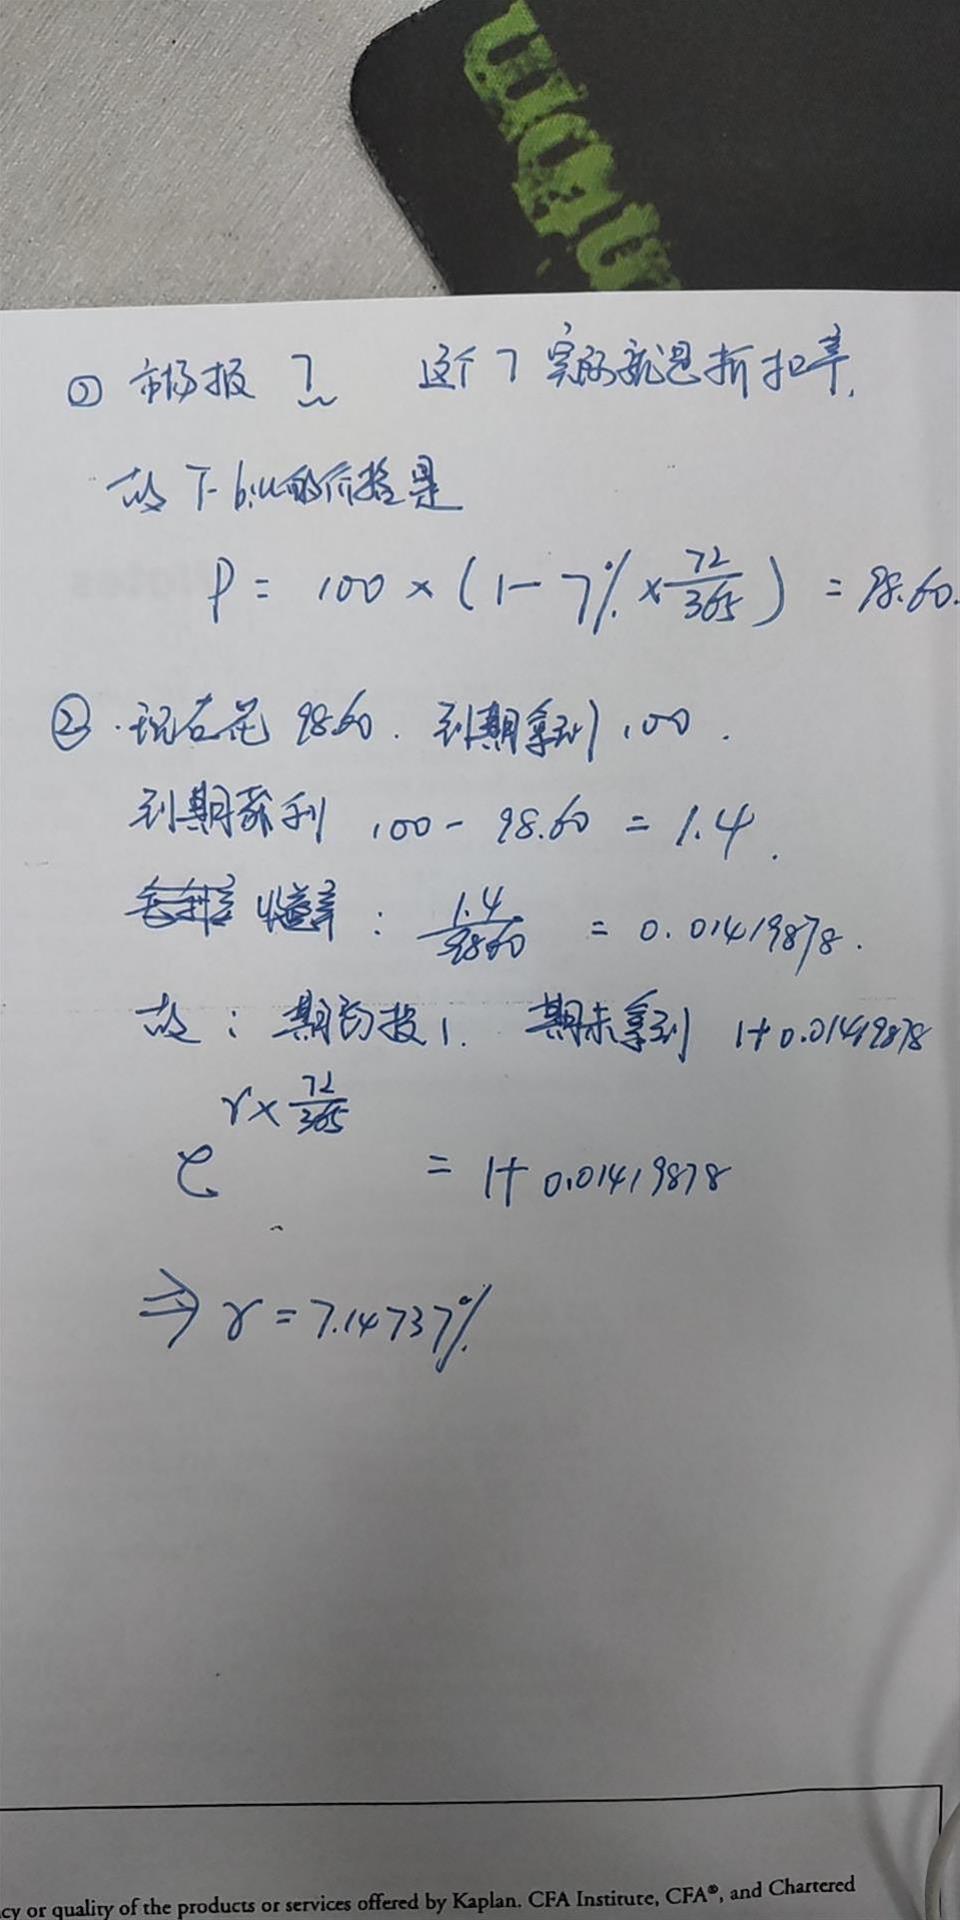 ① 市场报 7 这个7 实际就是折扣率.
故 T-bill的价格是
P = 100 × (1- 7% × 72/365) = 98.60.
② 现在花 98.60. 到期拿到 100.
到期获利 100 - 98.60 = 1.4.
收益率: 1.4/98.60 = 0.01419878.
故: 期初投1. 期末拿到 1+0.01419878
e^(r×72/365) = 1+ 0.01419878
⇒ r = 7.14737%
cy or quality of the products or services offered by Kaplan. CFA Institute, CFA®, and Chartered